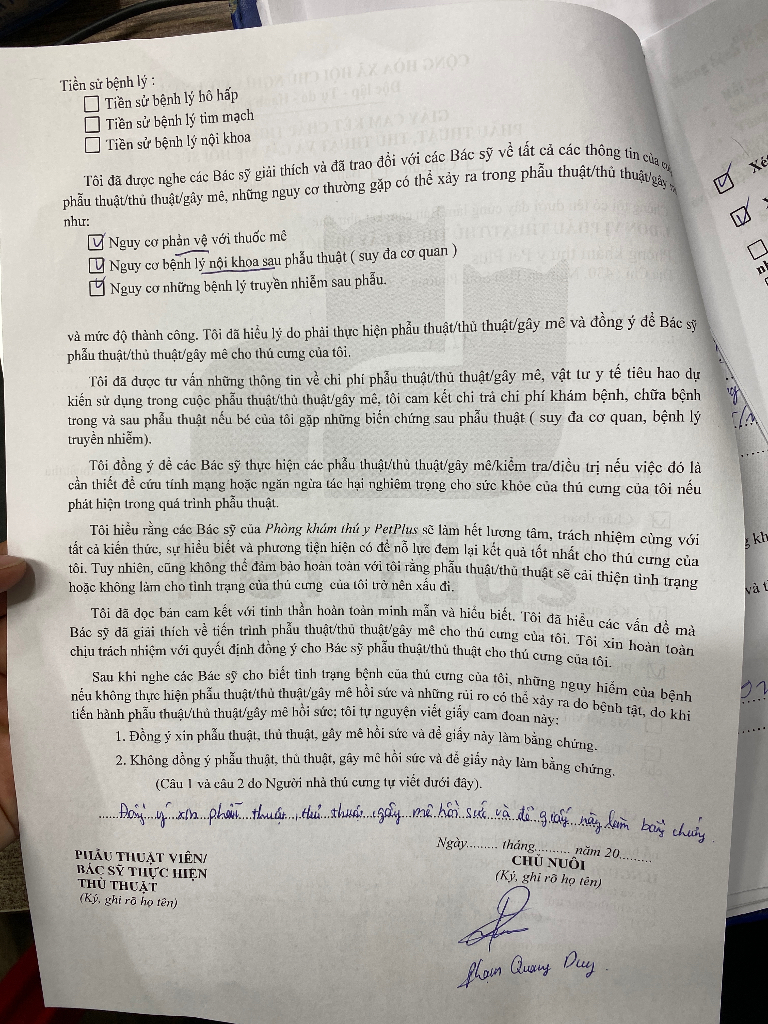 Tiền sử bệnh lý :
Tiền sử bệnh lý hô hấp
Tiền sử bệnh lý tim mạch
Tiền sử bệnh lý nội khoa
Tôi đã được nghe các Bác sỹ giải thích và đã trao đổi với các Bác sỹ về tất cả các thông tin của
phẫu thuật/thủ thuật/gây mê, những nguy cơ thường gặp có thể xảy ra trong phẫu thuật/thủ thuật/gây
như:
Nguy cơ phản vệ với thuốc mê
Nguy cơ bệnh lý nội khoa sau phẫu thuật ( suy đa cơ quan )
Nguy cơ những bệnh lý truyền nhiễm sau phẫu.
và mức độ thành công. Tôi đã hiểu lý do phải thực hiện phẫu thuật/thủ thuật/gây mê và đồng ý để Bác sỹ
phẫu thuật/thủ thuật/gây mê cho thú cưng của tôi.
Tôi đã được tư vấn những thông tin về chi phí phẫu thuật/thủ thuật/gây mê, vật tư y tế tiêu hao dự
kiến sử dụng trong cuộc phẫu thuật/thủ thuật/gây mê, tôi cam kết chi trả chi phí khám bệnh, chữa bệnh
trong và sau phẫu thuật nếu bé của tôi gặp những biến chứng sau phẫu thuật ( suy đa cơ quan, bệnh lý
truyền nhiễm).
Tôi đồng ý để các Bác sỹ thực hiện các phẫu thuật/thủ thuật/gây mê/kiểm tra/điều trị nếu việc đó là
cần thiết để cứu tính mạng hoặc ngăn ngừa tác hại nghiêm trọng cho sức khỏe của thú cưng của tôi nếu
phát hiện trong quá trình phẫu thuật.
Tôi hiểu rằng các Bác sỹ của Phòng khám thú y PetPlus sẽ làm hết lương tâm, trách nhiệm cùng với
tất cả kiến thức, sự hiểu biết và phương tiện hiện có để nỗ lực đem lại kết quả tốt nhất cho thú cưng của
tôi. Tuy nhiên, cũng không thể đảm bảo hoàn toàn với tôi rằng phẫu thuật/thủ thuật sẽ cải thiện tình trạng
hoặc không làm cho tình trạng của thú cưng của tôi trở nên xấu đi.
Tôi đã đọc bản cam kết với tinh thần hoàn toàn minh mẫn và hiểu biết. Tôi đã hiểu các vấn đề mà
Bác sỹ đã giải thích về tiến trình phẫu thuật/thủ thuật/gây mê cho thú cưng của tôi. Tôi xin hoàn toàn
chịu trách nhiệm với quyết định đồng ý cho Bác sỹ phẫu thuật/thủ thuật cho thú cưng của tôi.
Sau khi nghe các Bác sỹ cho biết tình trạng bệnh của thú cưng của tôi, những nguy hiểm của bệnh
nếu không thực hiện phẫu thuật/thủ thuật/gây mê hồi sức và những rủi ro có thể xảy ra do bệnh tật, do khi
tiến hành phẫu thuật/thủ thuật/gây mê hồi sức; tôi tự nguyện viết giấy cam đoan này:
1. Đồng ý xin phẫu thuật, thủ thuật, gây mê hồi sức và để giấy này làm bằng chứng.
2. Không đồng ý phẫu thuật, thủ thuật, gây mê hồi sức và để giấy này làm bằng chứng.
(Câu 1 và câu 2 do Người nhà thú cưng tự viết dưới đây).
Đồng ý xin phẫu thuật, thủ thuật, gây mê hồi sức và để giấy này làm bằng chứng
Ngày.......... tháng.......... năm 20.........
PHẪU THUẬT VIÊN/
BÁC SỸ THỰC HIỆN
THỦ THUẬT
(Ký, ghi rõ họ tên)
CHỦ NUÔI
(Ký, ghi rõ họ tên)
Phạm Quang Duy